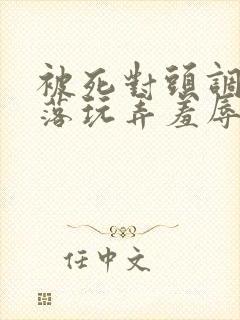 被死對頭調
落玩弄羞辱
任中文